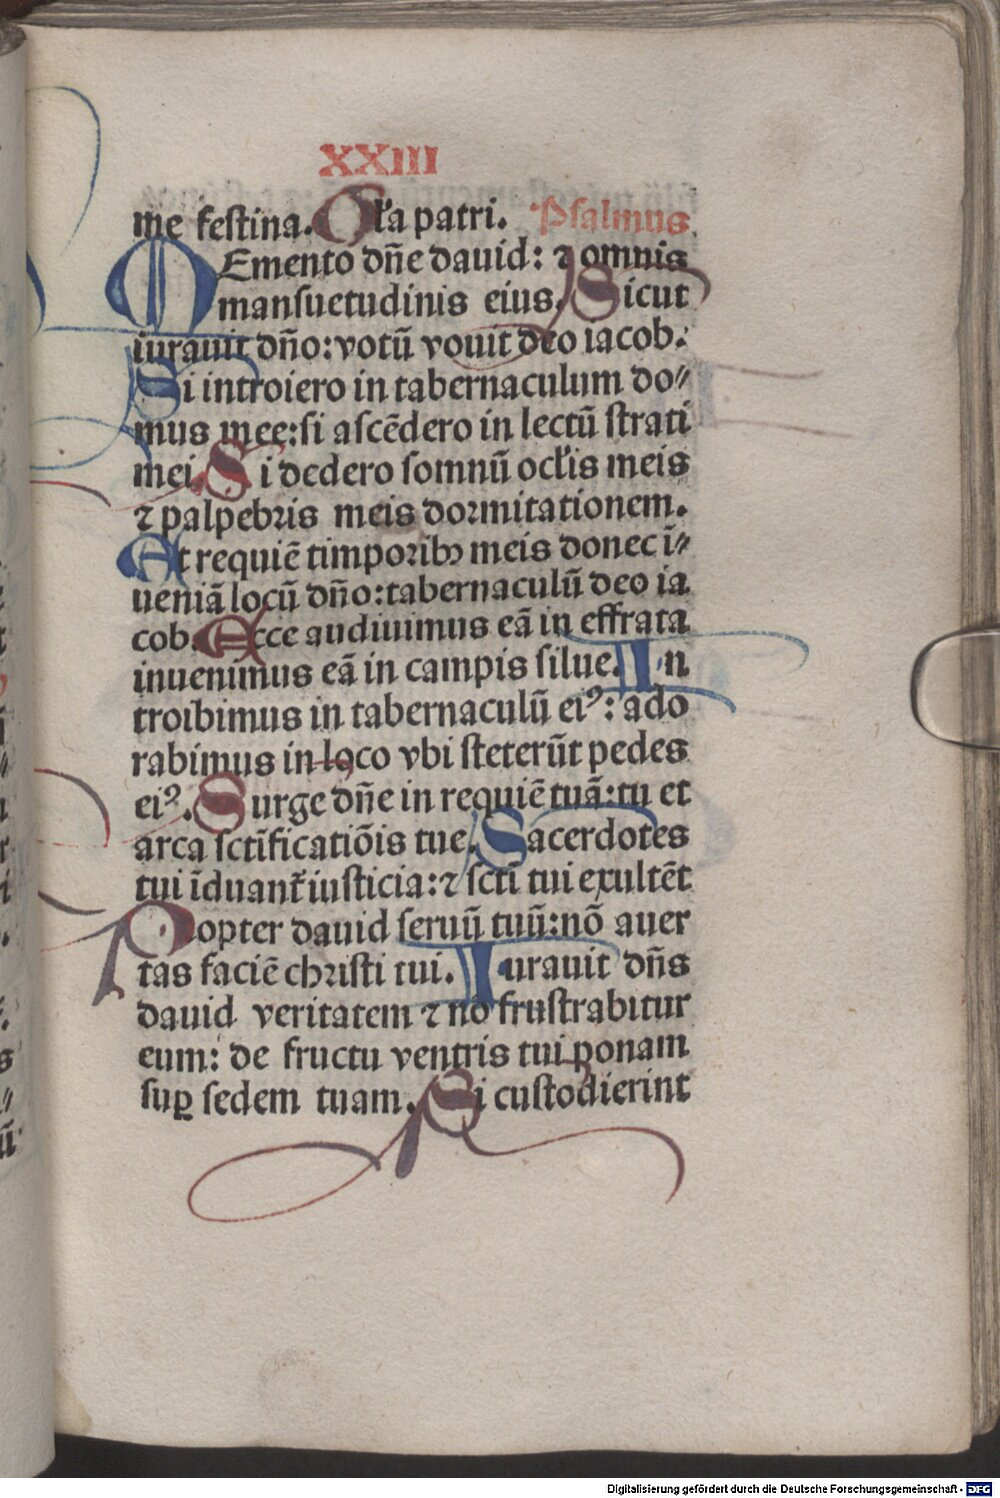 XXIII
me festina. Gl'a patri. Psalmus.
MEmento dñe dauid: ⁊ omnis
mansuetudinis eius. Sicut
iurauit dño: votū vouit deo iacob.
Si introiero in tabernaculum do⸗
mus mee: si ascēdero in lectū strati
mei. Si dedero somnū ocl'is meis
⁊ palpebris meis dormitationem.
Et requiē timporibꝫ meis donec ī⸗
ueniā locū dño: tabernaculū deo ia
cob. Ecce audiuimus eā in effrata
inuenimus eā in campis silue. In
troibimus in tabernaculū eiꝰ: ado
rabimus in loco vbi steterūt pedes
eiꝰ. Surge dñe in requiē tuā: tu et
arca sctīficatiōis tue. Sacerdotes
tui īduant᷑ iusticia: ⁊ sctī tui exultēt
Propter dauid seruū tuū: nō auer
tas faciē christi tui. Iurauit dñs
dauid veritatem ⁊ nō frustrabitur
eum: de fructu ventris tui ponam
suꝑ sedem tuam. Si custodierint
Digitalisierung gefördert durch die Deutsche Forschungsgemeinschaft - DFG